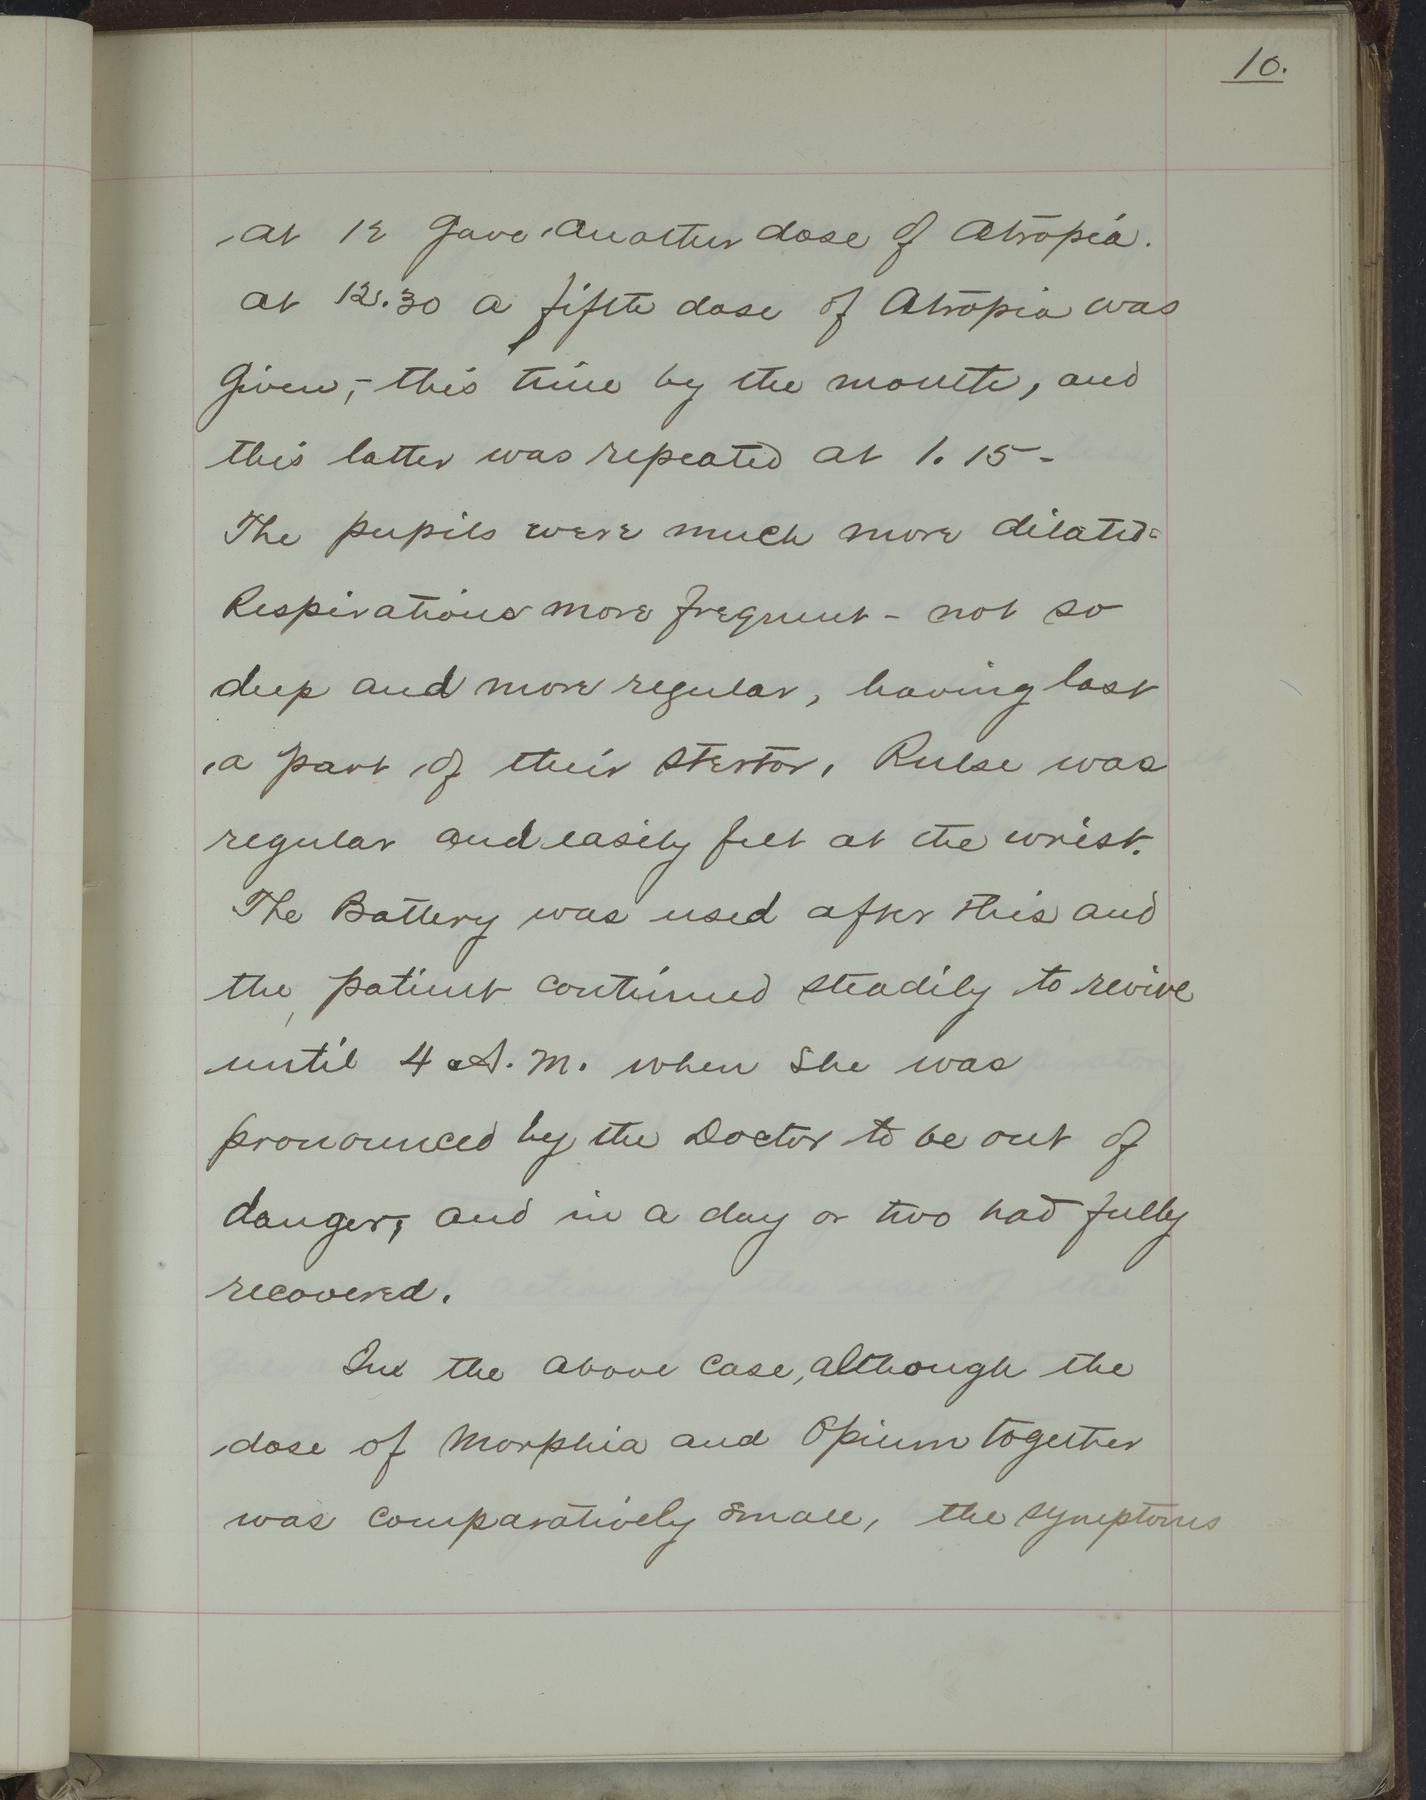 10.
at 12 gave another dose of Atropia.
at 12.30 a fifth dose of Atropia was
given,- this time by the mouth, and
this latter was repeated at 1.15-
The pupils were much more dilated-
Respirations more frequent - not so
deep and more regular, having lost
a part of their stertor, Pulse was
regular and easily felt at the wrist.
The Battery was used after this and
the patient continued steadily to revive
until 4 A.M. when she was
pronounced by the Doctor to be out of
danger, and in a day or two had fully
recovered.
In the above case, although the
dose of Morphia and Opium together
was comparatively small, the symptoms